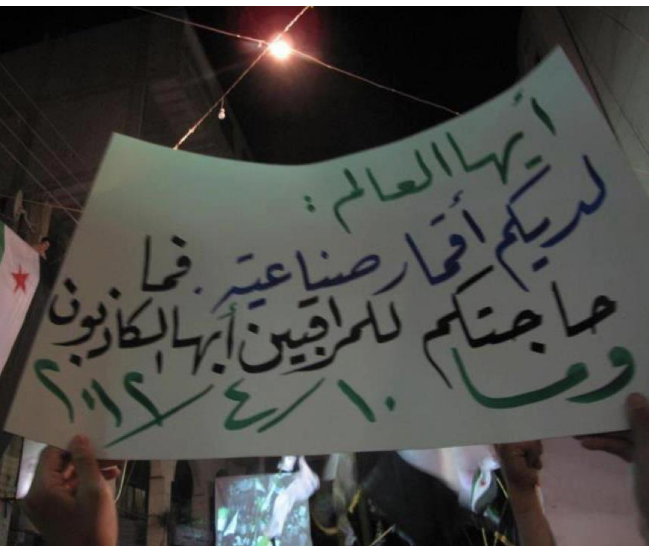 أيها العالم :
لديكم أقمار صناعية . فما
حاجتكم للمراقبين أيها الكاذبون
دوما ١٠/٤/٢٠١٢